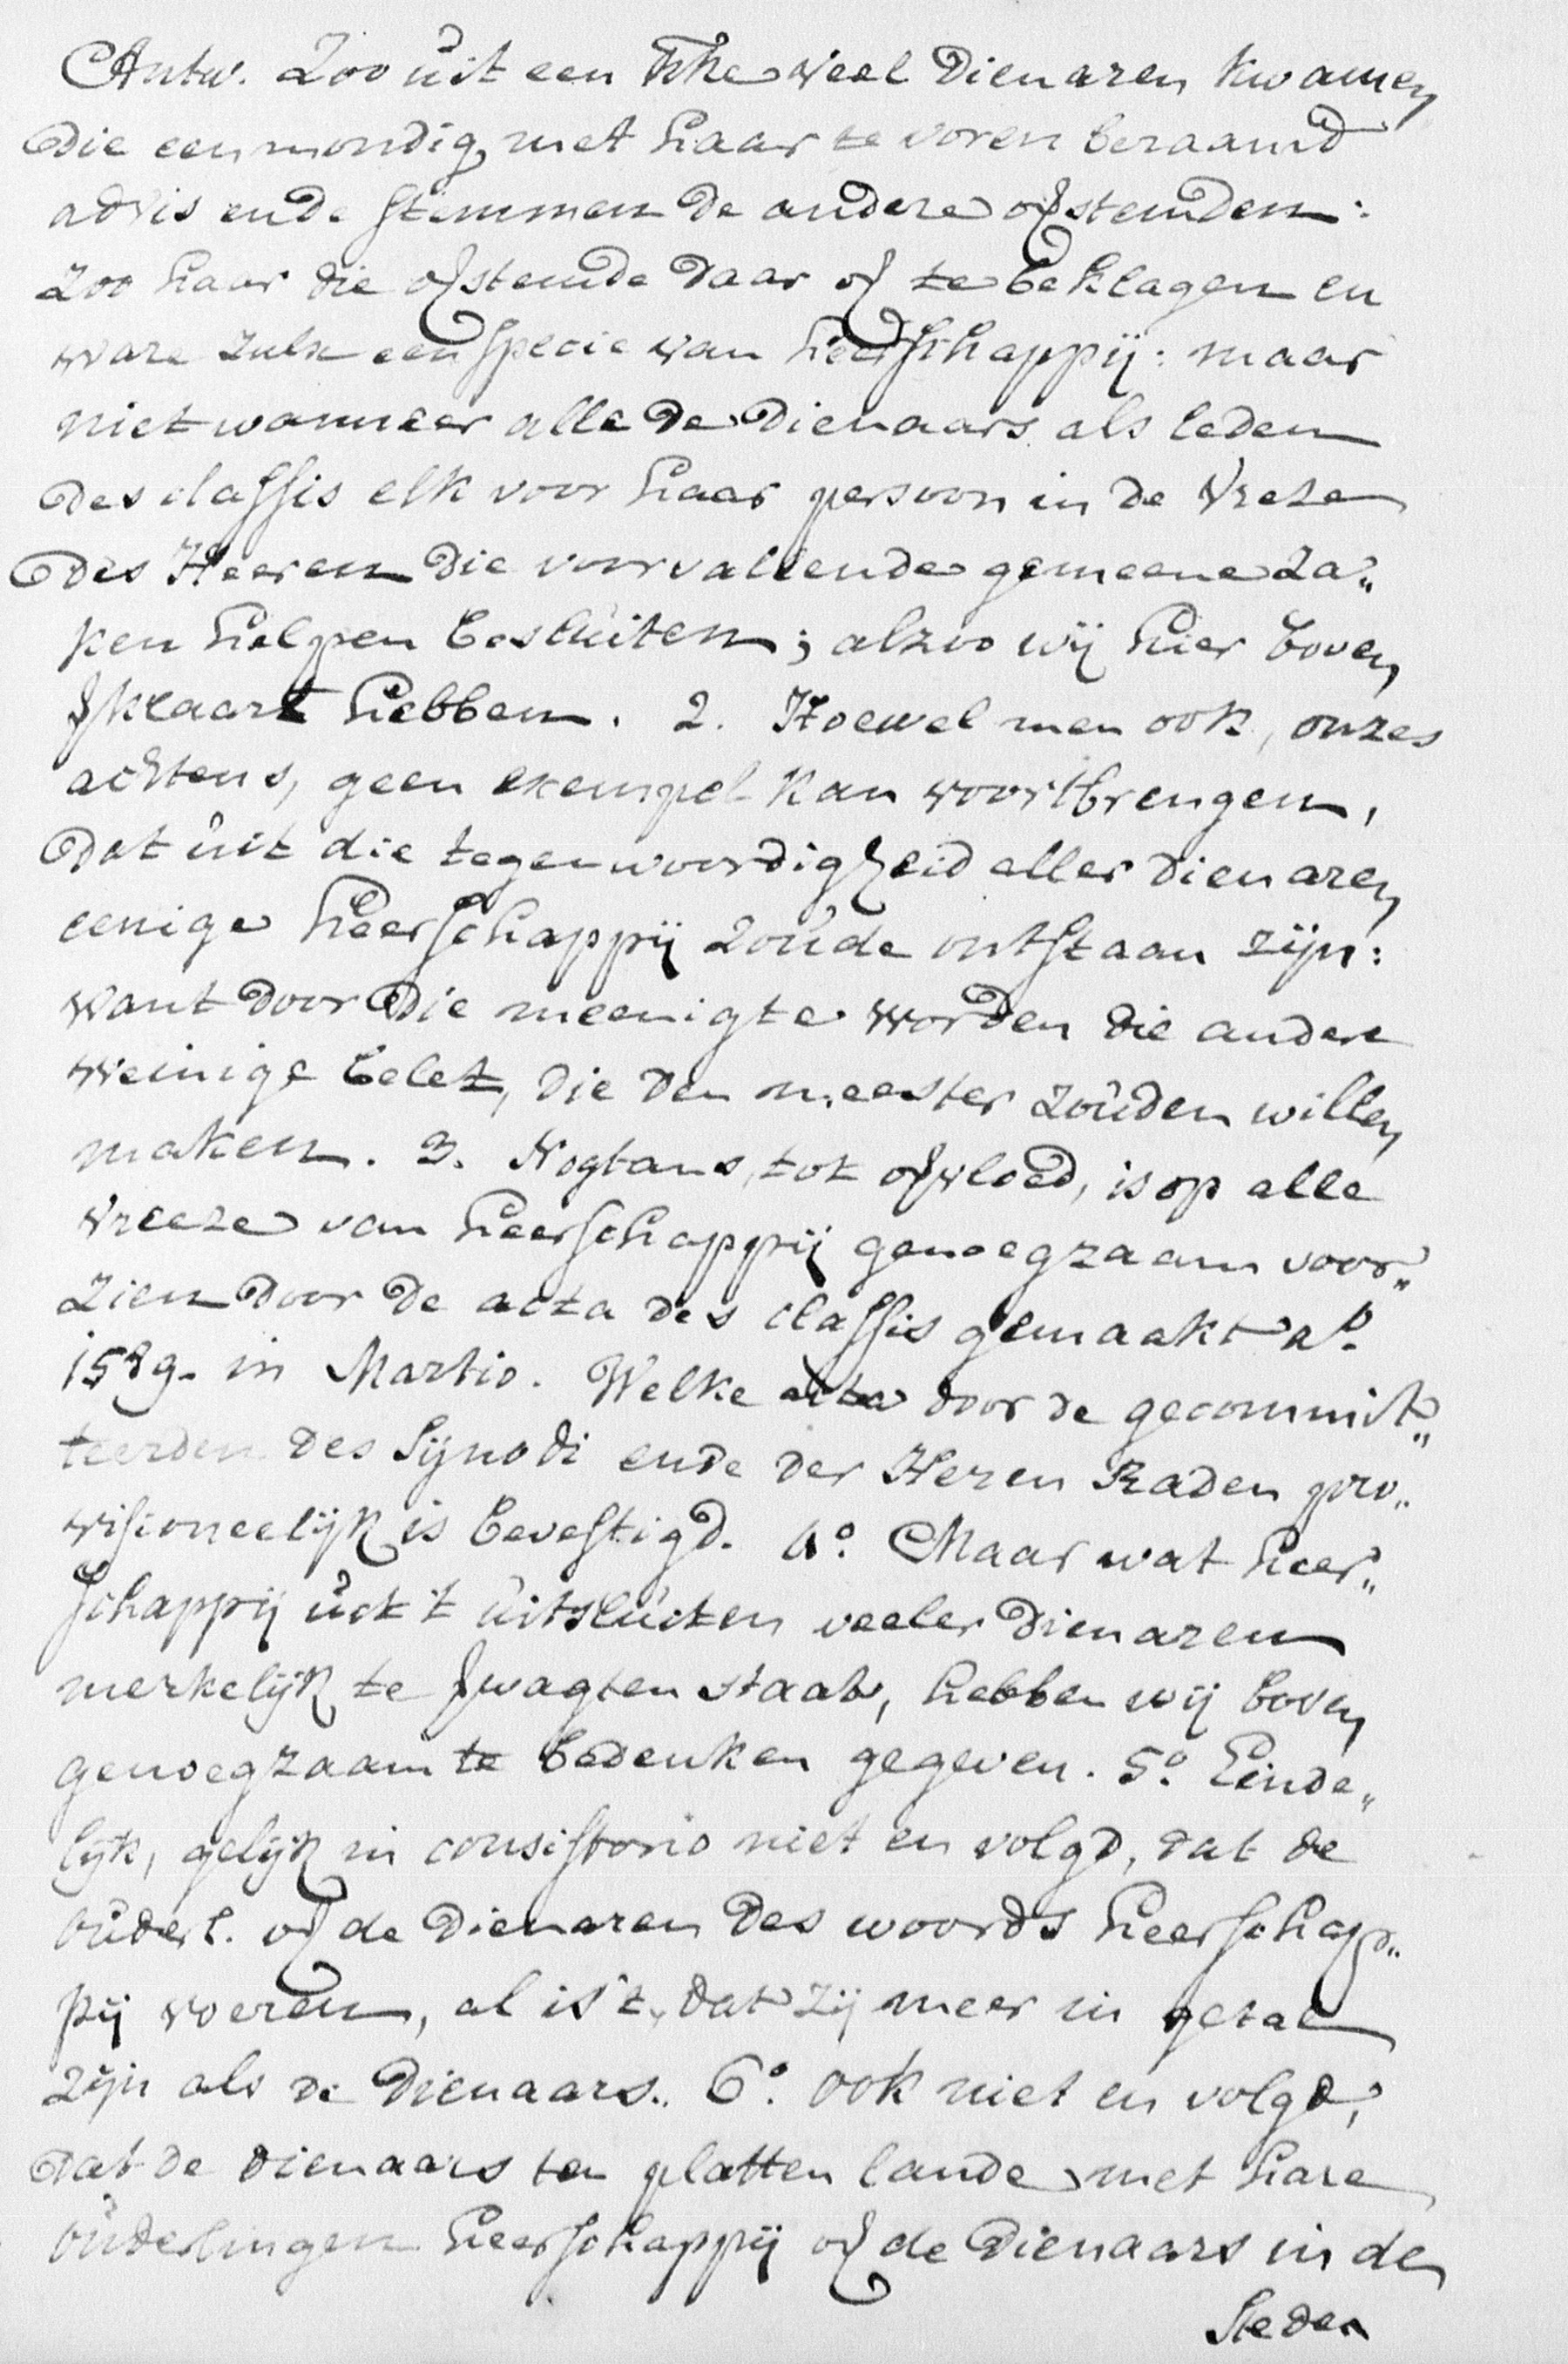 Antw. Zoo uit een Kke veel Dienaren kwamen
die eenmondig met haar te voren beraamd
advis ende stemmen de andere ofstemden:
Zoo haar die ofstemde daar of te beklagen en
ware zulx een specie van heerschappij: maar
niet wanneer alle de Dienaars als leden
des classis elk voor haar persoon in de vreze
des Heeren die voorvallende gemeene za„
ken helpen besluiten; alzoo wij hier boven
verklaart hebben. 2. Hoewel men ook, onzes
achtens, geen exempel kan voortbrengen,
dat uit die tegenwoordigheid aller dienaren
eenige heerschappij zoude ontstaan zijn:
want door die meenigte worden die andere
weinige belet, die den meester zouden willen
maken. 3. Nogtans, tot ofvloed, is op alle
vreeze van heerschappij genoegzaam voor„
zien door de acta des classis gemaakt aº.
1589. in Martio. Welke acta door de gecommit„
teerden des Sijnodi ende der Heren Raden pro„
visioneelijk is bevestigd. 4º. Maar wat heer„
schappij uit 't uitsluiten veeler Dienaren
merkelijk te verwagten staat, hebben wij boven
genoegzaam te bedenken gegeven. 5º. Einde„
lijk, gelijk in consistorio niet en volgd, dat de
ouderl. of de Dienaren des woords heerschap„
pij voeren, al is 't, dat zij meer in getal
zijn als de Dienaars. 6º. ook niet en volgd,
dat de dienaars ten platten lande met hare
ouderlingen heerschappij of de Dienaars in de
Steden